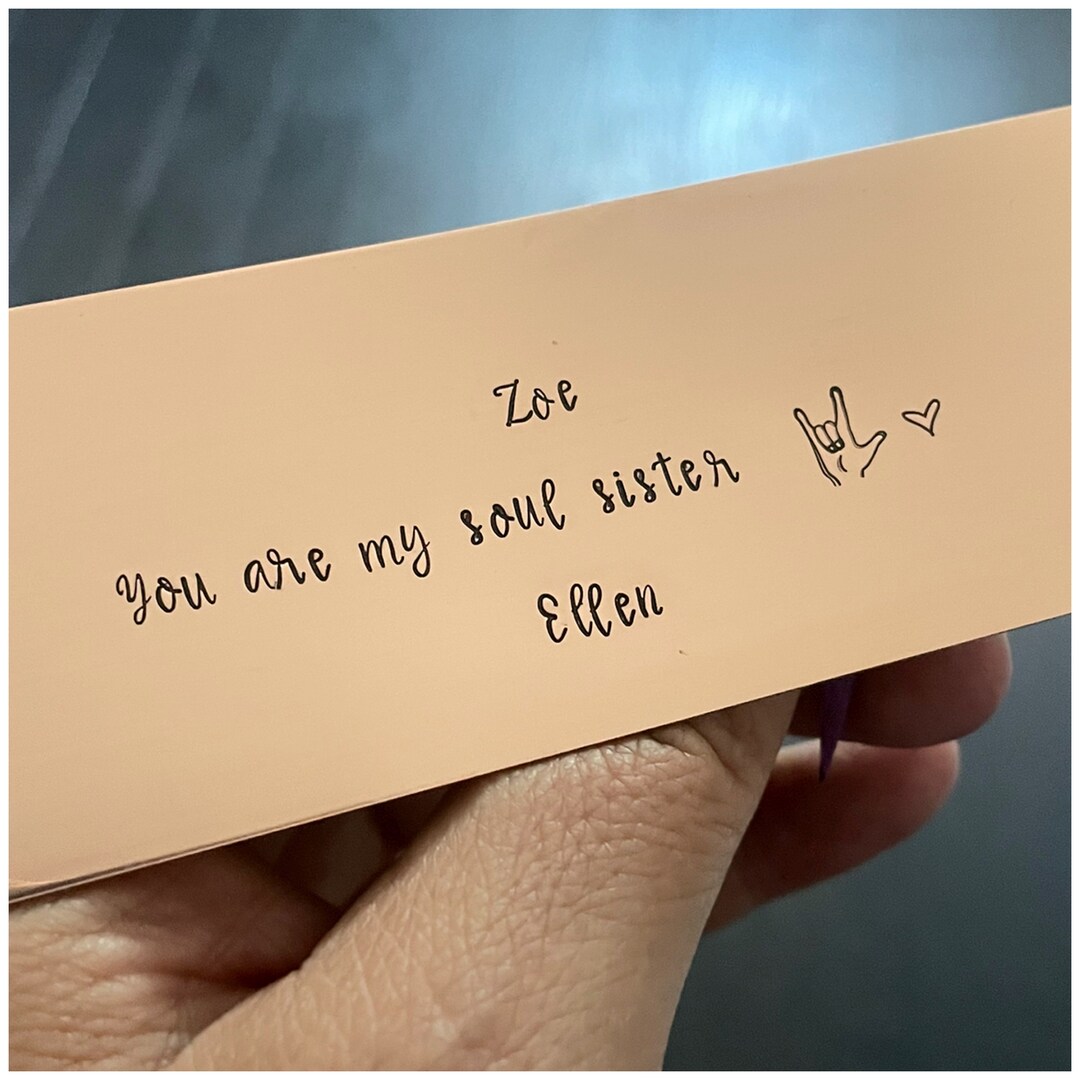 Zoe
You are my soul sister
Ellen